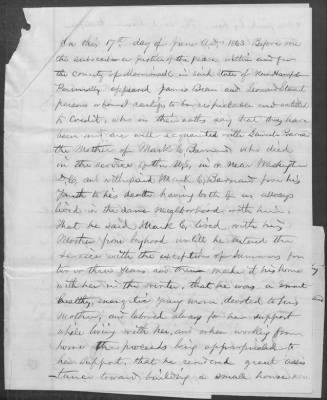 On this 17th day of June A.D. 1863 Before me
the subscriber a justice of the peace within and for
the County of Merrimack in said state of New Hamps
Personally appeard James Dean and Leonard Stuart
persons whom I certify to be respectable and entitled
to Credit, who on their oaths say that they have
been and are well acquainted with
the Mother of Mark C. who died
in the service of the U.S. in or near Washington
D.C. and with said Mark C. from his
youth to his death having both of us always
lived in the same neighborhood with him,
that he said Mark C. lived with his
Mother from boyhood untill he entered the
service with the exception of summers for
two or three years and then made it his home
with her in the winter, that he was a smart
healthy, energetic young man devoted to his
mother, and labored always for her support
while living with her, and when working from
home the proceeds being appropriated to
her support, that he rendered great assis
tance toward building a small house